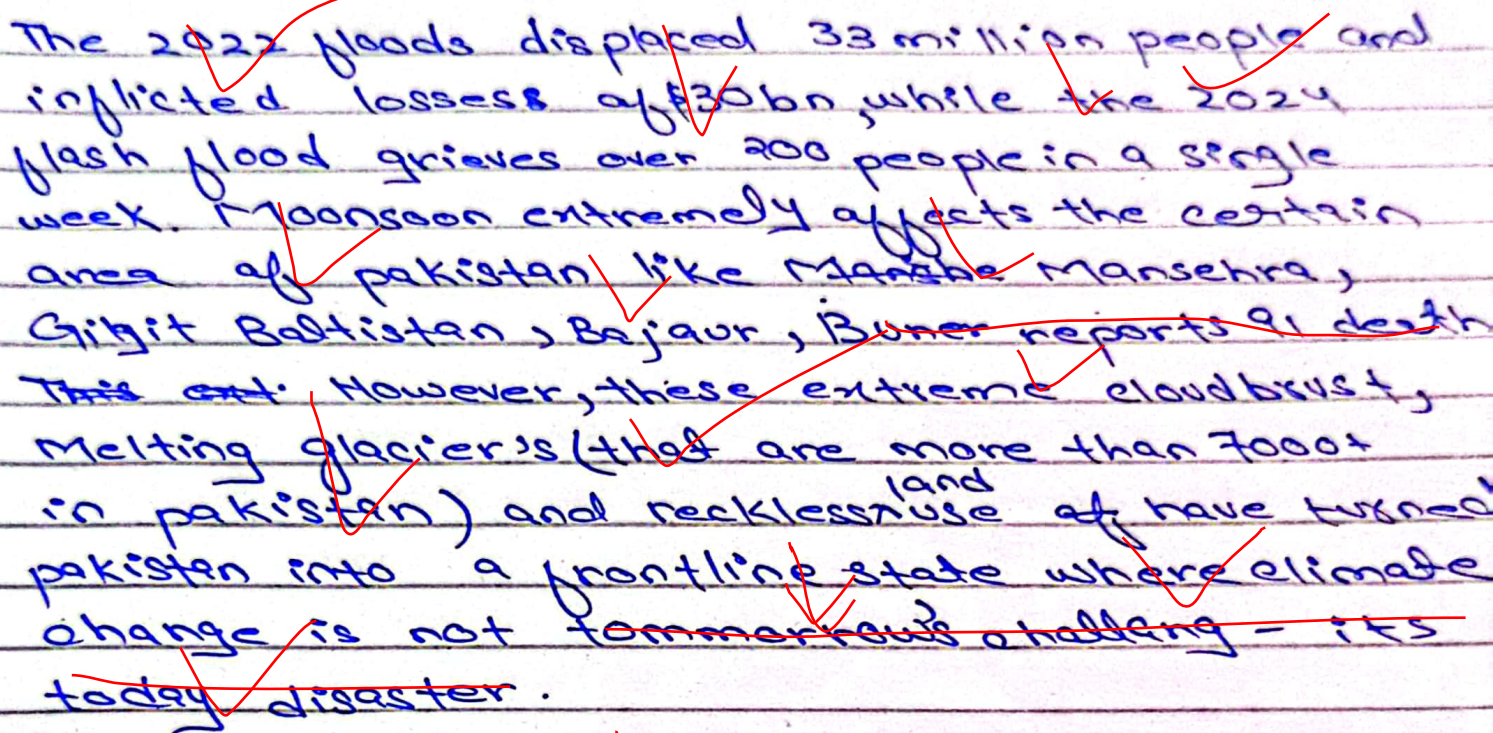 The 2022 floods displaced 33 million people and
inflicted lossess of $30bn, while the 2024
flash flood grieves over 200 people in a single
week. Moonsoon extremely affects the certain
area of pakistan like Mansehra,
Gilgit Baltistan, Bajaur, Buner reports 91 death
This ext. However, these extreme cloudbrust,
Melting glacier's (that are more than 7000+
in pakistan) and reckless land use of have turned
pakistan into a frontline state where climate
change is not tommorrow's challang - its
today disaster.